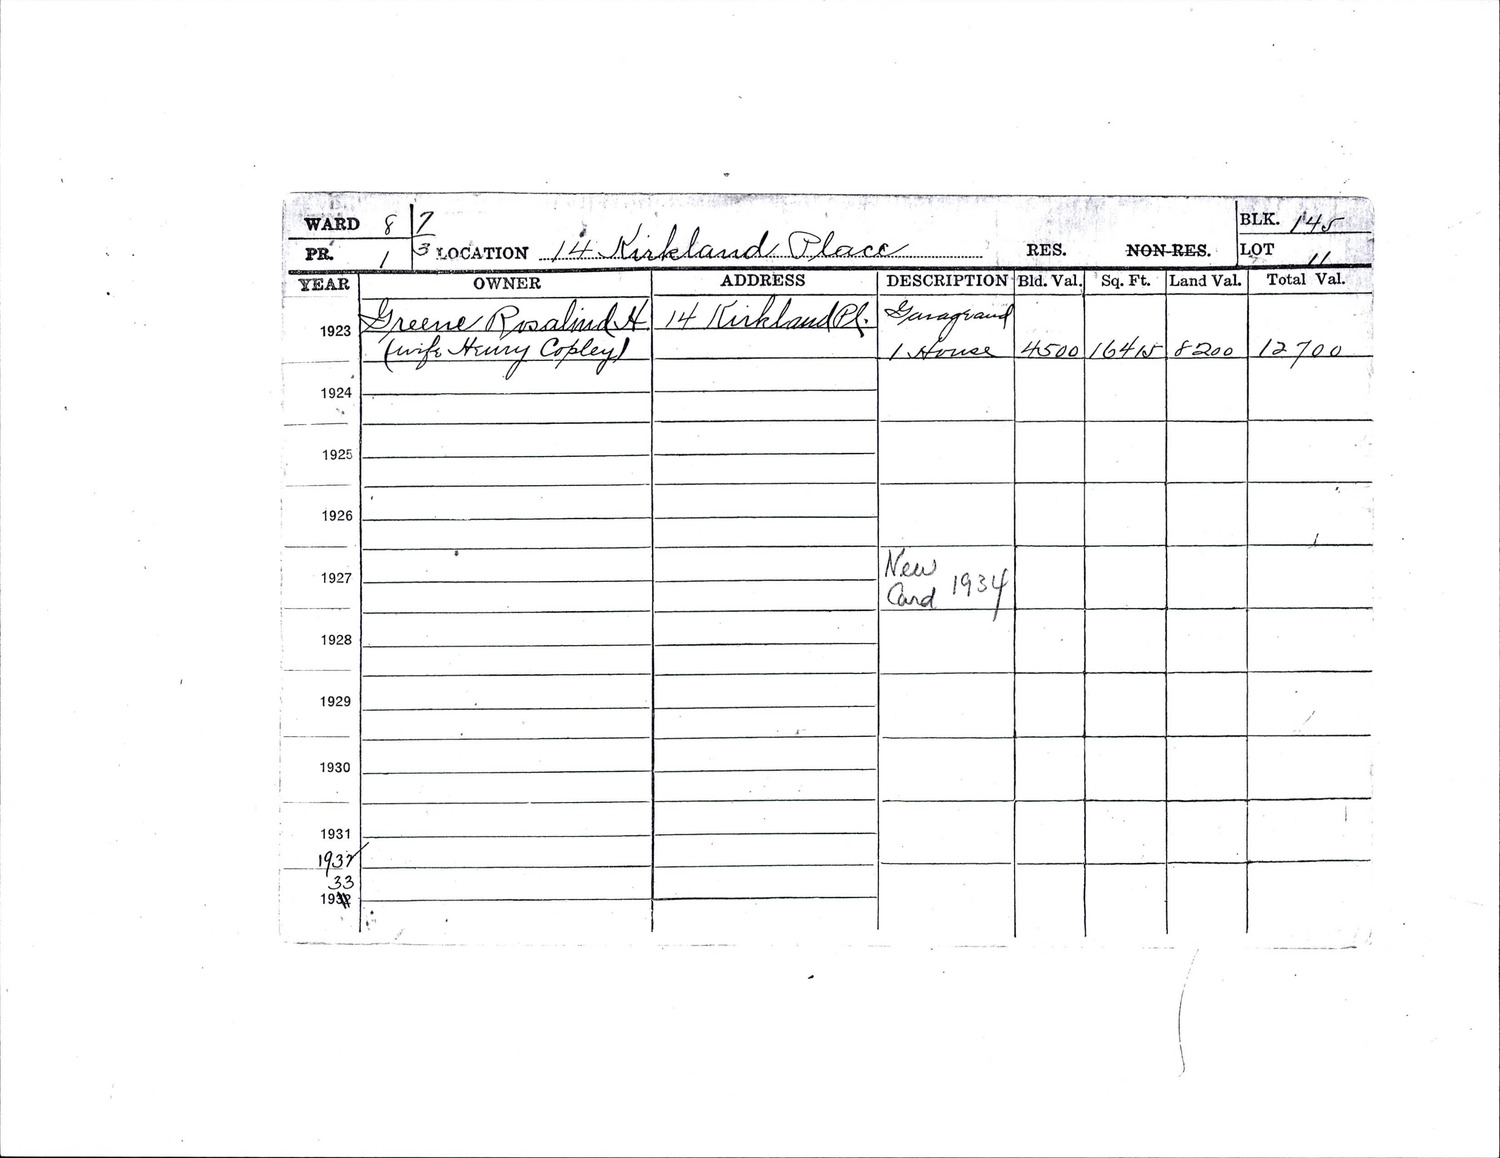 WARD 8 7 BLK. 145
PR. 1 3 LOCATION 14 Kirkland Place RES. NON-RES. LOT 11
YEAR OWNER ADDRESS DESCRIPTION Bld. Val. Sq. Ft. Land Val. Total Val.
1923 Greene Rosalind H 14 Kirkland Pl. Garage and
(wife Henry Copley) 1 House 4500 16415 8200 12700
1924
1925
1926
1927 New Card 1934
1928
1929
1930
1931
1932
33